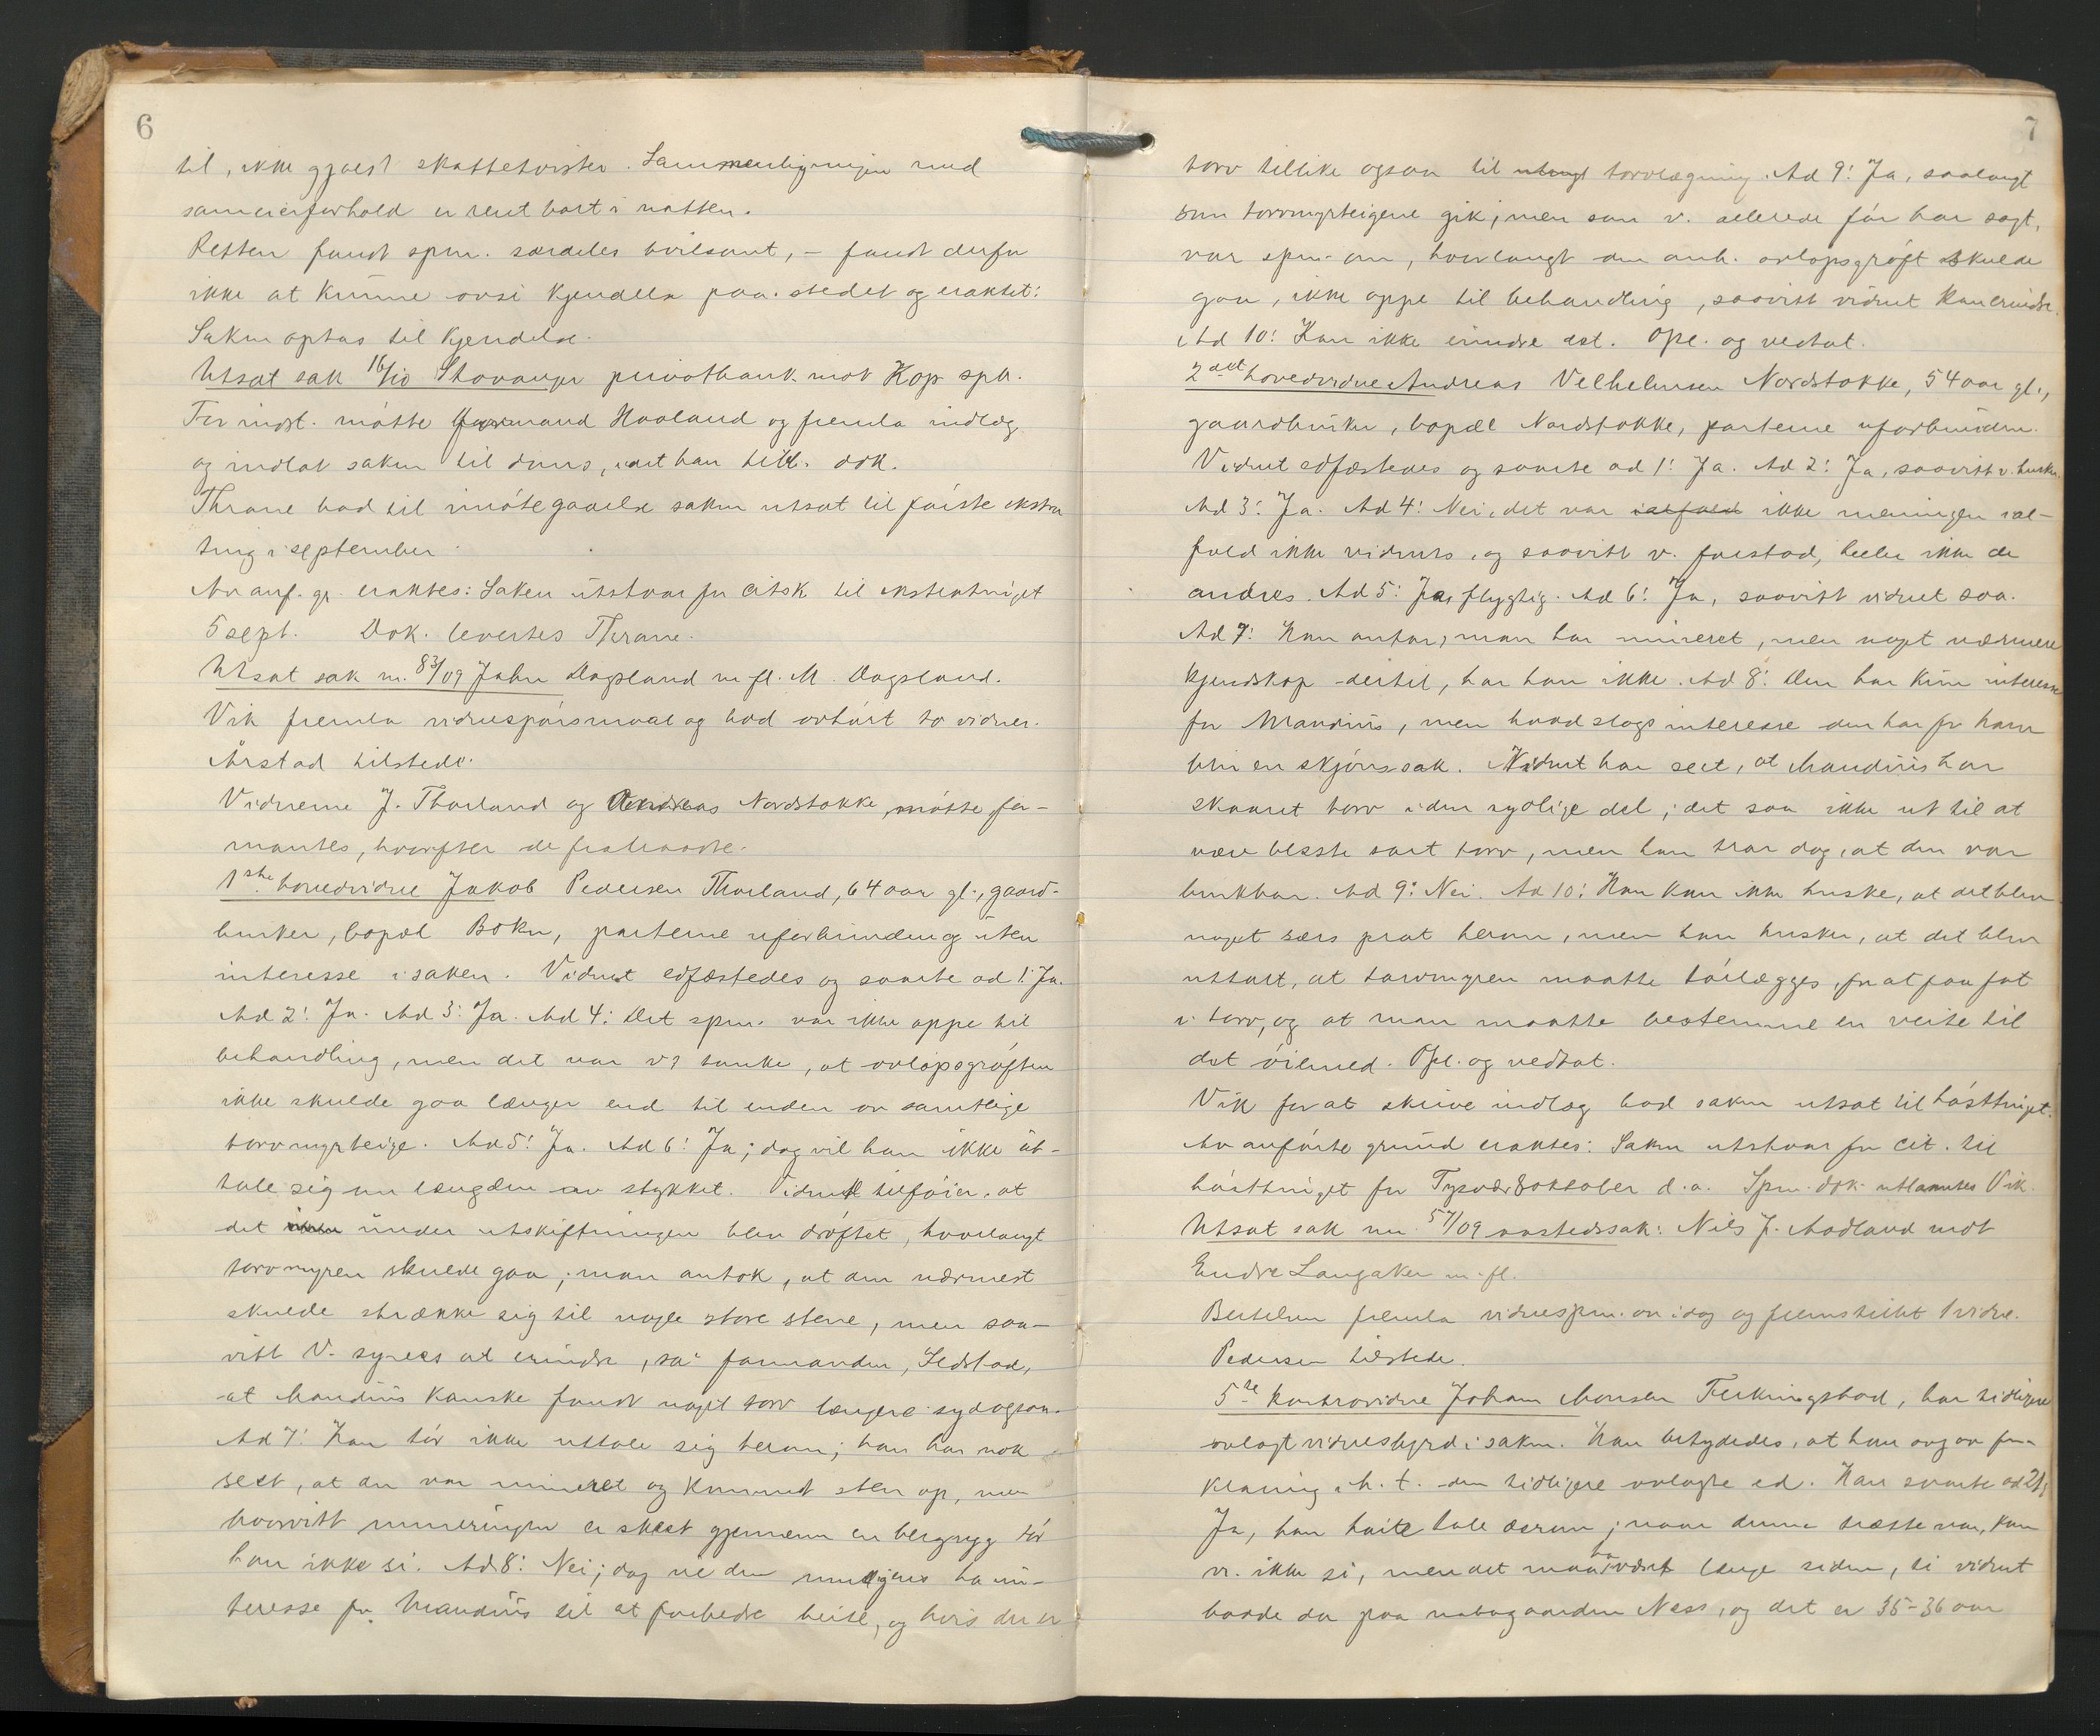 6
til, ikke gjort skattetvister. Sammenligningen med
sameierforhold er rent bort i natten.
Retten fandt spm. særdeles tvilsomt, – fandt derfor
ikke at kunne avsi kjendelse paa stedet og eraktet:
Saken optas til kjendelse.
Utsat sak 16/10 Stavanger privatbank mot Hop spb.
For indst. møtte formand Haaland og fremla indlæg
og indlot saken til doms, idet han till. dok.
Thrane bad til imøtegaaelse saken utsat til første ekstra
ting i september
Av anf. gr. eraktes: Saken utstaar fr citsk til ekstratinget
5 sept. Dok. levertes Thrane.
Utsat sak nr. 83/09 John Dagsland m fl. M. Dagsland.
Vik fremla vidnespørsmaal og bad avhørt to vidner.
Årstad tilstede.
Vidnerne J. Thorland og Andreas Nordstokke møtte, for-
mantes, hvorefter de fratraadte.
1ste hovedvidne Jakob Pedersen Thorland, 64 aar gl., gaard-
bruker, bopæl Bokn, parterne uforbunden og uten
interesse i saken. Vidnet edfæstedes og svarte ad 1: Ja.
Ad 2: Ja. Ad 3: Ja. Ad 4: Det spm. var ikke oppe til
behandling, men det var v's tanke, at avløpsgrøften
ikke skulde gaa længer end til enden av samtlige
torvmyrteige. Ad 5: Ja. Ad 6: Ja; dog vil han ikke ut-
tale sig om længden av stykket. Vidnet tilføier, at
det under utskiftningen blev drøftet, hvorlangt
torvmyren skulde gaa; man antok, at den nærmest
skulde strække sig til nogle store stene, men saa-
vitt v. synes at erindre, sa formanden, Sedstad,
at Maudius kanske fandt noget torv længere syd ogsaa.
Ad 7: Han tør ikke uttale sig herom; han har nok
seet, at der var mineret og kommet sten op, men
hvorvitt mineringen er skeet gjennem en bergryg tør
han ikke si. Ad 8: Nei; dog vil den muligens ha in-
teresse for Maudius til at forbedre beite, og hvis der er
7
torv tillike ogsaa til torvtægning. Ad 9: Ja, saalangt
som torvmyrteigene gik; men som v. allerede før har sagt,
var spm. om, hvorlangt den anh. avløpsgrøft skulde
gaa, ikke oppe til behandling, saavitt vidnet kan erindre.
Ad 10: Kan ikke erindre det. Opl. og vedtat.
2det hovedvidne Andreas Velhelmsen Nordstokke, 54 aar gl.,
gaardbruker, bopæl Nordstokke, parterne uforbunden.
Vidnet edfæstedes og svarte ad 1: Ja. Ad 2: Ja, saavitt v. husker.
Ad 3: Ja. Ad 4: Nei, det var ialfald ikke meningen ial-
fald ikke vidnets, og saavitt v. forstod, heller ikke de
andres. Ad 5: Ja, flygtig. Ad 6: Ja, saavitt vidnet saa.
Ad 7: Han antar, man har mineret, men noget nærmere
kjendskap dertil, har han ikke. Ad 8: Den har kun interesse
for Maudius, men hvad slags interesse den har for ham
blir en skjønssak. Vidnet har seet, at Maudius har
skaaret torv i den sydlige del; det saa ikke ut til at
være beste sort torv, men han tror dog, at den var
brukbar. Ad 9: Nei. Ad 10: Han kan ikke huske, at det blev
noget særs prat herom, men han husker, at det blev
uttalt, at torvmyren maatte tørlægges, for at faa fat
i torv, og at man maatte bestemme en veite til
det øiemed. Opl. og vedtat.
Vik for at skrive indlæg bad saken utsat til høsttinget.
Av anførte grund eraktes: Saken utstaar fr cit. til
høsttinget for Tysvær 8 oktober d.a. Spm. dok. utlaantes Vik.
Utsat sak nr. 57/09 aastedssak: Nils J. Aadland mot
Endre Langaker m. fl.
Bertelsen fremla vidnespm. av idag og fremstillet 1 vidne.
Pedersen tilstede.
5te kontravidne Johan Monsen Ferkingstad, har tidligere
avlagt vidnesbyrd i saken. Han betydedes, at han avgav for-
klaring i h. t. den tidligere avlagte ed. Han svarte ad 21:
Ja, han hørte tale derom; naar denne trætte var, kan
v. ikke si, men det maa ha været længe siden, ti vidnet
bodde da paa nabogaarden Ness, og det er 35-36 aar